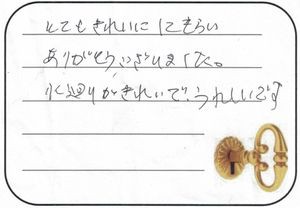 とてもきれいにしてもらい
ありがとうございました。
水廻りがきれいで、うれしいです